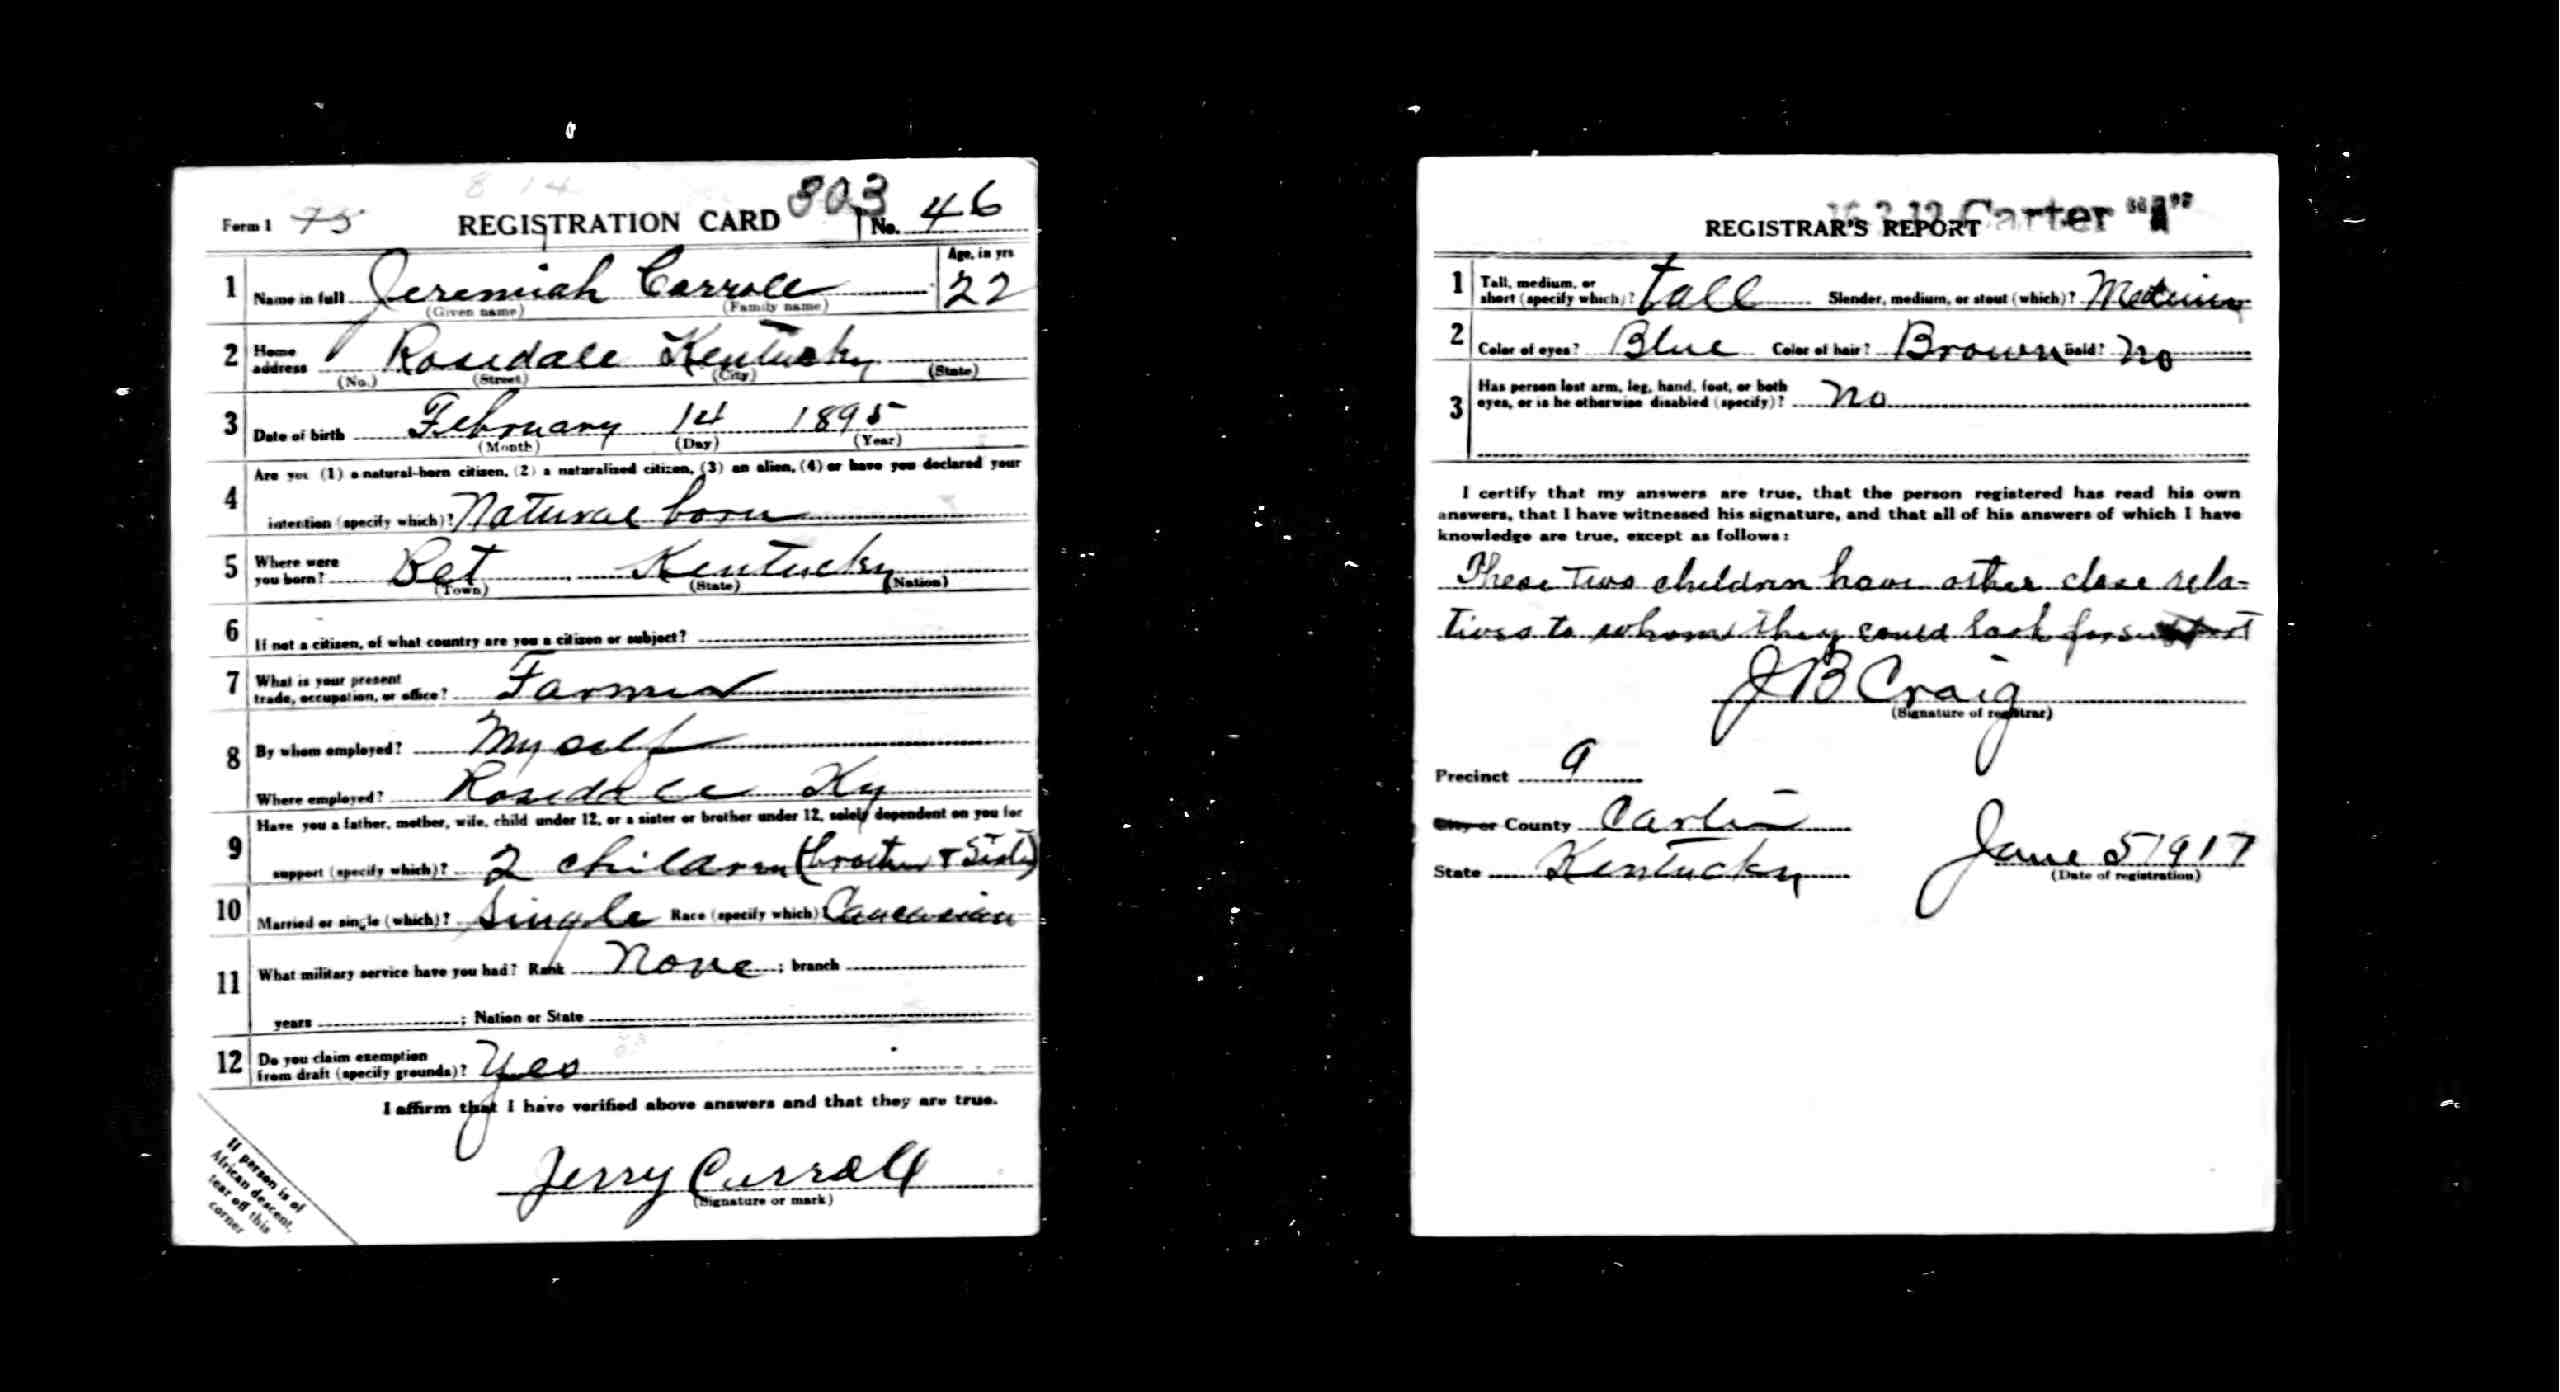 8 14
Form 1 75 REGISTRATION CARD 303 No. 46
1 Name in full Jeremiah Carroll Age, in yrs 22
(Given name) (Family name)
2 Home address Rosedale Kentucky
(No.) (Street) (City) (State)
3 Date of birth February 14 1895
(Month) (Day) (Year)
4 Are you (1) a natural-born citizen, (2) a naturalized citizen, (3) an alien, (4) or have you declared your
intention (specify which)? Natural born
5 Where were you born? Bet Kentucky
(Town) (State) (Nation)
6 If not a citizen, of what country are you a citizen or subject?
7 What is your present trade, occupation, or office? Farmer
8 By whom employed? Myself
Where employed? Rosedale Ky
9 Have you a father, mother, wife, child under 12, or a sister or brother under 12, solely dependent on you for
support (specify which)? 2 children (brother & Sister)
10 Married or single (which)? Single Race (specify which)? Caucasian
11 What military service have you had? Rank None ; branch
years ; Nation or State
12 Do you claim exemption from draft (specify grounds)? Yes
I affirm that I have verified above answers and that they are true.
Jerry Carroll
(Signature or mark)
If person is of
African descent,
tear off this
corner
Carter "A"
REGISTRAR'S REPORT
1 Tall, medium, or short (specify which)? Tall Slender, medium, or stout (which)? Medium
2 Color of eyes? Blue Color of hair? Brown Bald? No
3 Has person lost arm, leg, hand, foot, or both
eyes, or is he otherwise disabled (specify)? No
I certify that my answers are true, that the person registered has read his own
answers, that I have witnessed his signature, and that all of his answers of which I have
knowledge are true, except as follows:
These two children have other close rela-
tives to whom they could look for support
J B Craig
(Signature of registrar)
Precinct 9
City or County Carter
State Kentucky June 5 1917
(Date of registration)